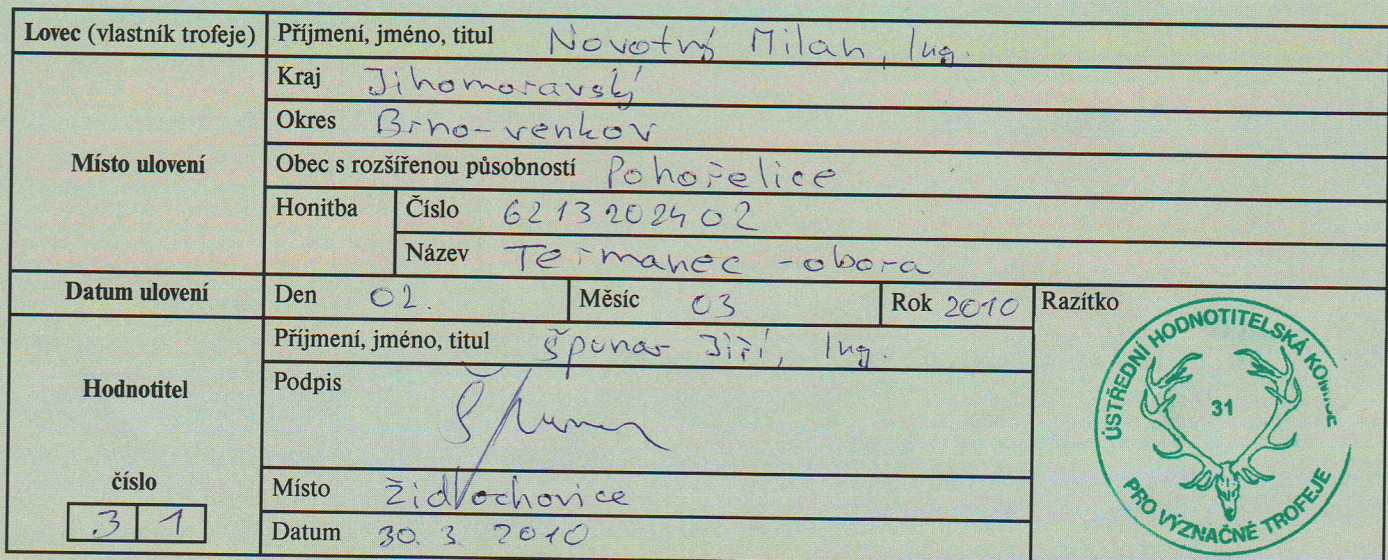 Lovec (vlastník trofeje) Příjmení, jméno, titul Novotný Milan, Ing.
Místo ulovení
Kraj Jihomoravský
Okres Brno-venkov
Obec s rozšířenou působností Pohořelice
Honitba Číslo 6213202402
Název Teřmanec - obora
Datum ulovení Den 02. Měsíc 03 Rok 2010 Razítko
Hodnotitel
Příjmení, jméno, titul Špunar Jiří, Ing.
Podpis
číslo
31
Místo Židlochovice
Datum 30. 3. 2010
ÚSTŘEDNÍ HODNOTITELSKÁ KOMISE
31
PRO VÝZNAČNÉ TROFEJE